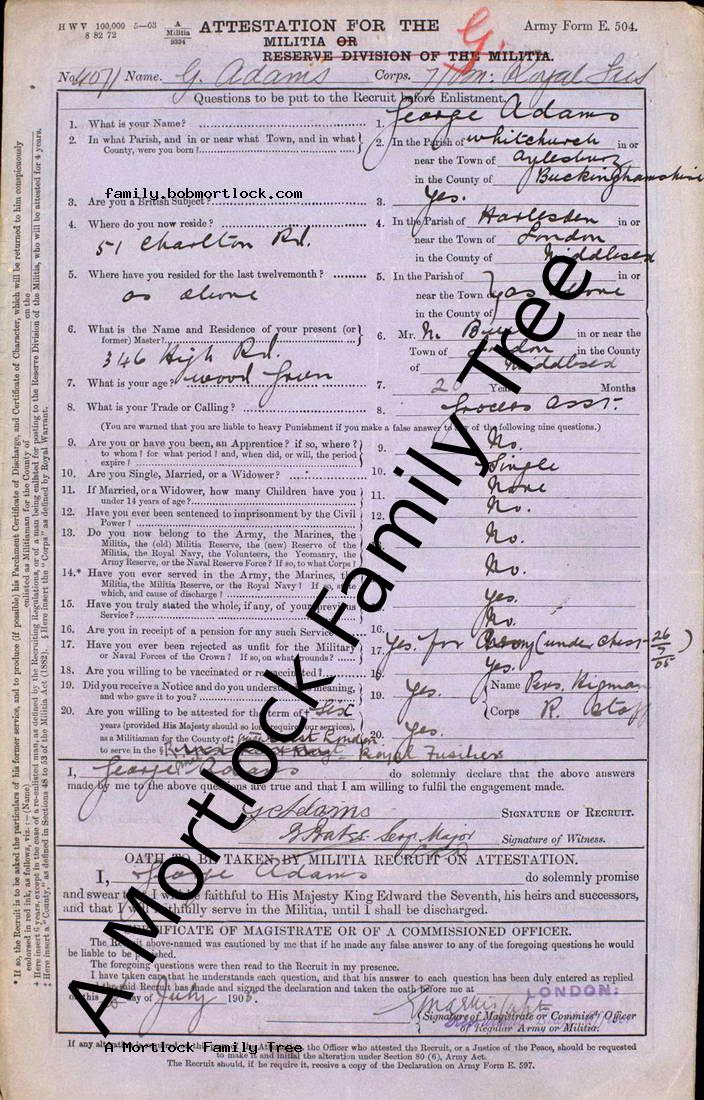 H W V 100,000 5—03 A Militia 9334
8 82 72
ATTESTATION FOR THE
Army Form E. 504.
MILITIA OR
RESERVE DIVISION OF THE MILITIA.
G.
No. 4071 Name. G. Adams Corps. Royal Fus
Questions to be put to the Recruit before Enlistment.
1. What is your Name?
1. George Adams
2. In what Parish, and in or near what Town, and in what County, were you born?
2. In the Parish of Whitchurch in or
near the Town of Aylesbury
in the County of Buckinghamshire
family.bobmortlock.com
3. Are you a British Subject?
3. Yes.
4. Where do you now reside?
51 Charlton Rd.
4. In the Parish of Harlesden in or
near the Town of London
in the County of Middlesex
5. Where have you resided for the last twelvemonth?
as above
5. In the Parish of in or
near the Town of as above
in the County of
6. What is the Name and Residence of your present (or former) Master?
346 High Rd.
Wood Green
6. Mr. in or near the
Town of London in the County
of Middlesex
7. What is your age?
7. Years Months
8. What is your Trade or Calling?
8. Grocers asst.
(You are warned that you are liable to heavy Punishment if you make a false answer to any of the following nine questions.)
9. Are you or have you been, an Apprentice? if so, where?
to whom? for what period? and, when did, or will, the period
expire?
9. No.
10. Are you Single, Married, or a Widower?
10. Single
11. If Married, or a Widower, how many Children have you
under 14 years of age?
11. None
12. Have you ever been sentenced to imprisonment by the Civil
Power?
12. No.
13. Do you now belong to the Army, the Marines, the
Militia, the (old) Militia Reserve, the (new) Reserve of the
Militia, the Royal Navy, the Volunteers, the Yeomanry, the
Army Reserve, or the Naval Reserve Force? If so, to what Corps?
No.
14.* Have you ever served in the Army, the Marines, the
Militia, the Militia Reserve, or the Royal Navy? If so, state
which, and cause of discharge?
No.
15. Have you truly stated the whole, if any, of your previous
Service?
Yes.
16. Are you in receipt of a pension for any such Service
16. No.
17. Have you ever been rejected as unfit for the Military
or Naval Forces of the Crown? If so, on what grounds?
17. Yes. for Army (under chest 26/7/05)
18. Are you willing to be vaccinated or re-vaccinated?
Yes.
19. Did you receive a Notice and do you understand its meaning,
and who gave it to you?
19. Yes. Name
Corps R. Staff
20. Are you willing to be attested for the term of Six
years (provided His Majesty should so long require your services),
as a Militiaman for the County of London
to serve in the Royal Fusiliers
20. Yes.
I, George Adams do solemnly declare that the above answers
made by me to the above questions are true and that I am willing to fulfil the engagement made.
G Adams SIGNATURE OF RECRUIT.
Major Signature of Witness.
OATH TO BE TAKEN BY MILITIA RECRUIT ON ATTESTATION.
I, George Adams do solemnly promise
and swear that I will be faithful to His Majesty King Edward the Seventh, his heirs and successors,
and that I will faithfully serve in the Militia, until I shall be discharged.
CERTIFICATE OF MAGISTRATE OR OF A COMMISSIONED OFFICER.
The Recruit above-named was cautioned by me that if he made any false answer to any of the foregoing questions he would
be liable to be punished.
The foregoing questions were then read to the Recruit in my presence.
I have taken care that he understands each question, and that his answer to each question has been duly entered as replied
and the said Recruit has made and signed the declaration and taken the oath before me at LONDON:
on this day of July 190
Signature of Magistrate or Commissd Officer
of Regular Army or Militia.
If any alteration the Attestation, the Officer who attested the Recruit, or a Justice of the Peace, should be requested
to make it and initial the alteration under Section 80 (6), Army Act.
The Recruit should, if he require it, receive a copy of the Declaration on Army Form E. 597.
A Mortlock Family Tree
A Mortlock Family Tree
* If so, the Recruit is to be asked the particulars of his former service, and to produce (if possible) his Parchment Certificate of Discharge, and Certificate of Character, which will be returned to him conspicuously
endorsed in red ink, as follows, viz.:—(Name) enlisted as Militiaman for the County of on the
† Here insert 6 years, except in the case of a re-enlisted man, as defined by the Recruiting Regulations, or of a man being enlisted for posting to the Reserve Division of the Militia, who will be attested for 4 years.
‡ Here insert a "County," as defined in Sections 48 to 53 of the Militia Act (1882). § Here insert the "Corps" as defined by Royal Warrant.